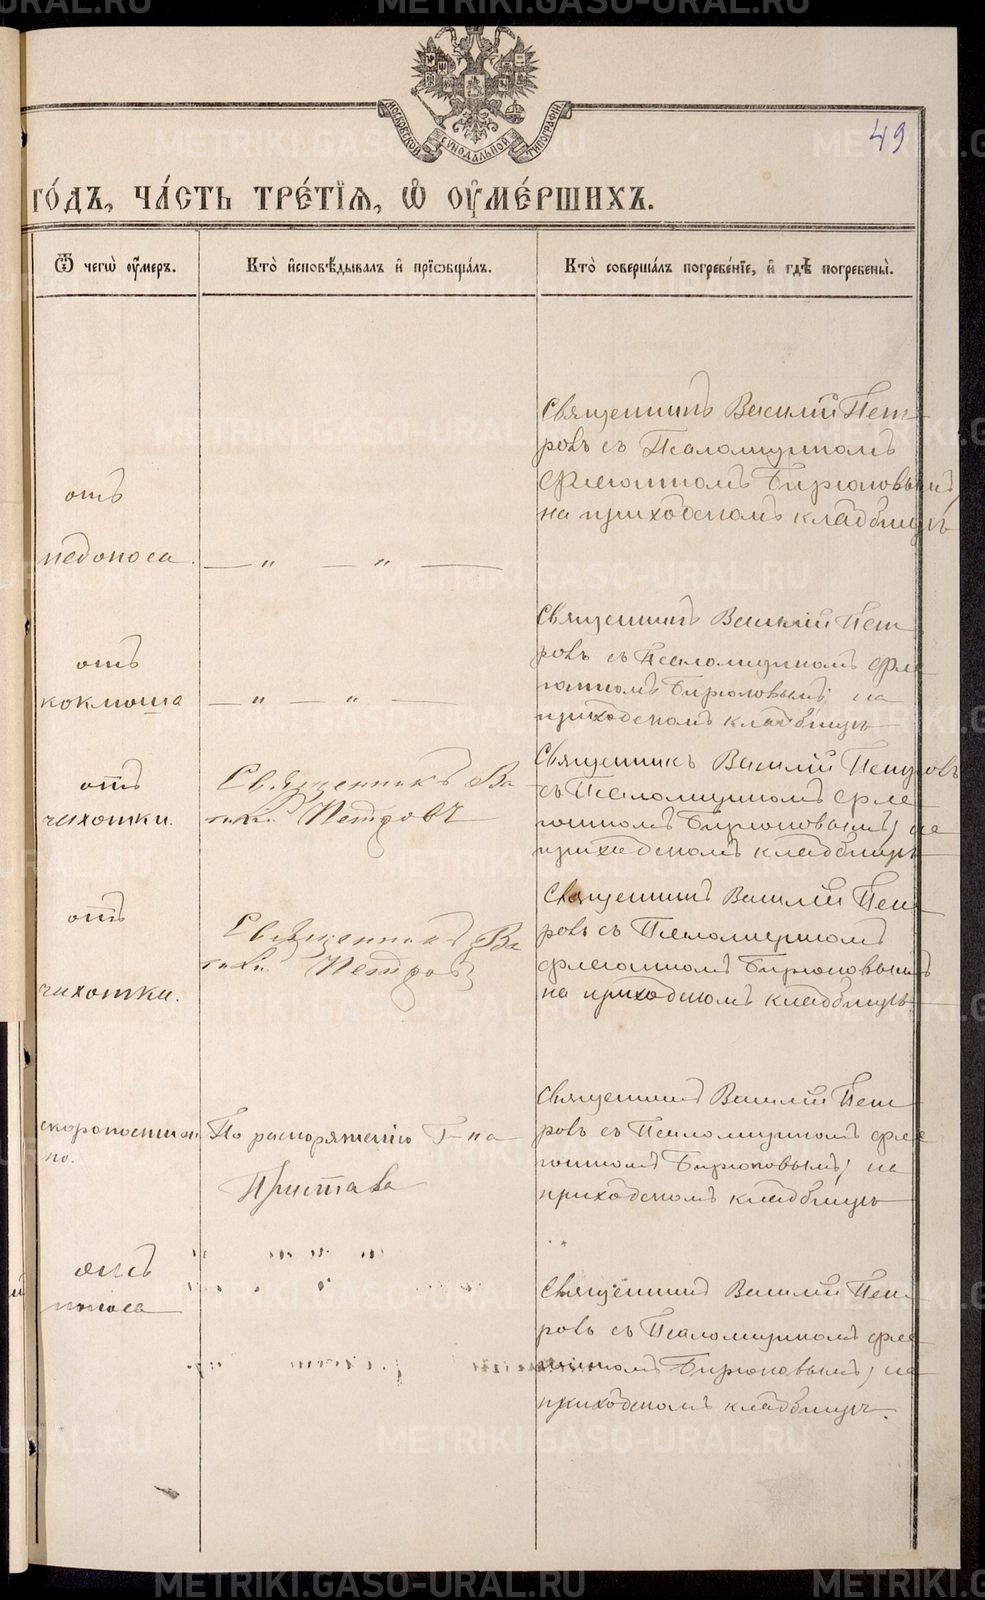 МОСКОВСКОЙ СѴНОДАЛЬНОЙ ТИПОГРАФІИ.
49
го́дъ, ча́сть тре́тїѧ, ѡ҆ ᲂу҆ме́ршихъ.
Ѿ чегѡ̀ ᲂу҆́меръ.
Кто̀ и҆сповѣ́дывалъ и҆ прїѻбща́лъ.
Кто̀ соверша́лъ погребе́нїе, и҆ гдѣ̀ погребены̀.
отъ
недоноса.
— „ — „ —
Священникъ Василій Пет
ровъ съ Псаломщикомъ
Флегонтомъ Бирюковымъ,
на приходскомъ кладбищѣ
отъ
коклюша
— „ — „ —
Священникъ Василій Пет
ровъ съ Псаломщикомъ Фле
гонтомъ Бирюковымъ, на
приходскомъ кладбищѣ
отъ
чихотки.
Священникъ Ва
силій Петровъ
Священникъ Василій Петровъ
съ Псаломщикомъ Фле
гонтомъ Бирюковымъ, на
приходскомъ кладбищѣ
отъ
чихотки.
Священникъ Ва
силій Петровъ
Священникъ Василій Пет
ровъ съ Псаломщикомъ
Флегонтомъ Бирюковымъ
на приходскомъ кладбищѣ
скоропостиж
но.
По распоряженію Г-на
Пристава
Священникъ Василій Пет
ровъ съ Псаломщикомъ Фле
гонтомъ Бирюковымъ, на
приходскомъ кладбищѣ
отъ
поноса
Священникъ Василій Пет
ровъ съ Псаломщикомъ Фле
гонтомъ Бирюковымъ, на
приходскомъ кладбищѣ.
METRIKI.GASO-URAL.RU